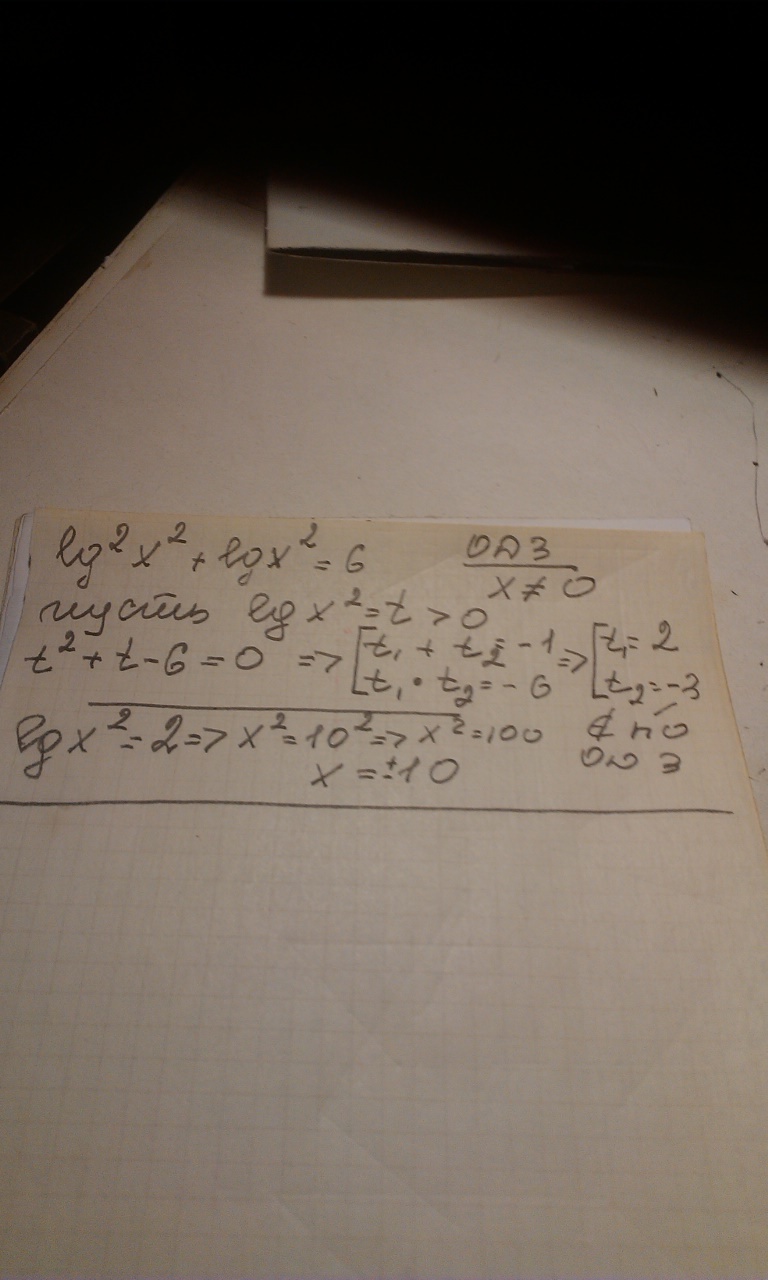 lg²x² + lgx² = 6
ОДЗ
x ≠ 0
пусть lgx² = t > 0
t² + t - 6 = 0 => [t₁ + t₂ = -1 => [t₁ = 2
t₁ · t₂ = -6 t₂ = -3
∉ по
ОДЗ
lgx² = 2 => x² = 10² => x² = 100
x = ±10